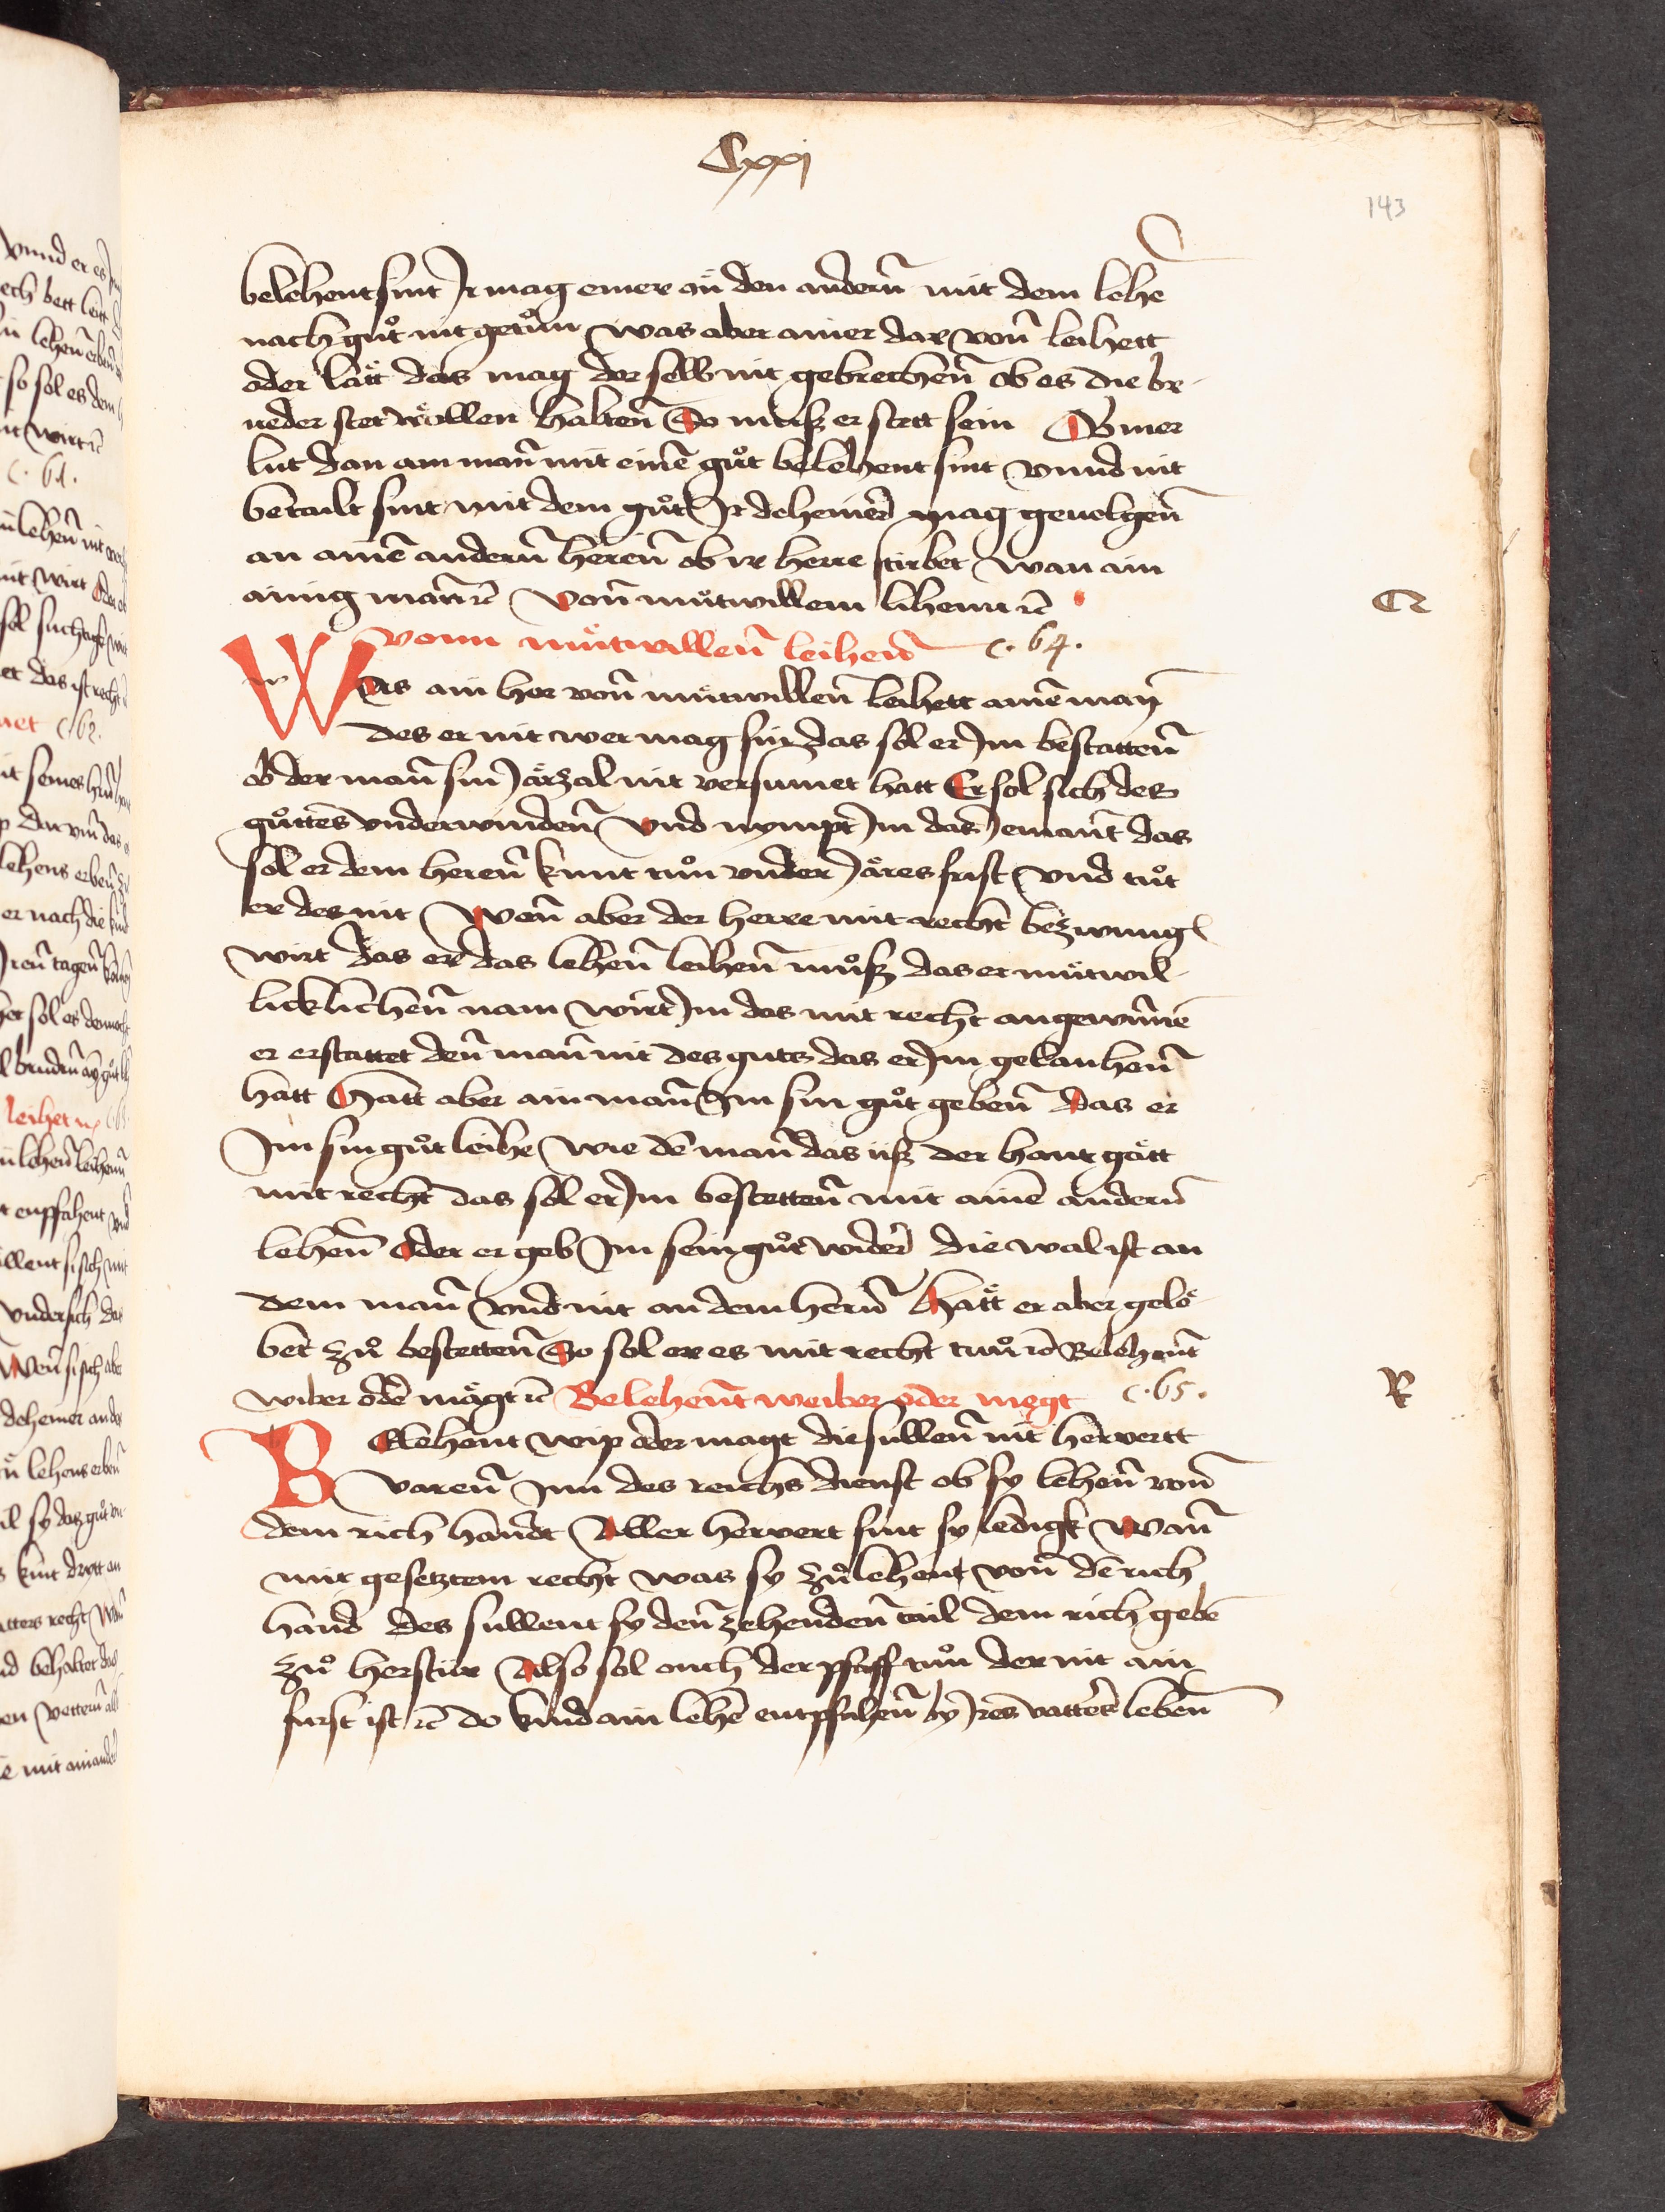 Cxxj
143
belehent sint Jr mag einer on den andern̄ mit dem lehē
nach guͦt nit getuͦn was aber ainer dar von̄ leihett
oder lätt das mag der selb nit gebrechen̄ ob es die br-
ueder stet wöllen halten̄ So muͦß er stett sein Wmer
lut dan ain man̄ mit einē guͦt belehent sint vnnd nit
betailt sint mit dem guͦt Jr dehein̄er mag geuolgen̄
an ainē andern̄ heren̄ ob ir herre stirbet wan ain
ainig man rc̄ Von̄ muͦtwillem lihenn rc̄
Vonn muͦtwillen̄ leihen̄ c. 64.
Was ain her von̄ muͦtwillen̄ leihett ainē man
des er nit wer mag sin das sol er Jm bestatten̄
ob der man̄ sin Järzal nit versumet hatt Er sol sich des
guͦttes vnderwinden̄ vnd nympt Jm das Jemant das
sol er dem heren̄ kunt tuͦn vnder Järes frist vnd tuͦt
er des nit Wan̄ aber der herre mit recht bezwung
wirt das er das lehen̄ leihen̄ muͦß das er muͦtwil-
licklichen̄ nam wirt Jm das mit recht angewun̄nē
er erstattet den̄ man̄ nit des gutz das er Jm gelauhen̄
hatt Hatt aber ain man̄ Jm sin guͦt geben̄ das er
Jm sin guͦt leihe wie dē man das uß der hant gätt
mit recht das sol er Jm bestetten̄ mit ainē andern̄
lehen̄ oder er geb Jm sein guͦt wider̄ die wal ist an
dem man̄ vnd nit an dem hern̄ Hätt er aber gelo-
bet zuͦ bestetten̄ So sol er es mit recht tuͦn rc̄ Belehent
wiber oder mägt rc̄ Belehent weiber oder megt c. 65.
BElehent wip oder magt die sullen̄ nit hervertt
varen̄ Jnn des reichs dienst ob sy lehen̄ von̄
dem rich handt Aller hervert sint sy ledigk Wan̄
mit gesetztem recht was sy zuͦ lehent von̄ dē rich
hand des sullent sy den̄ zehenden̄ tail dem rich gebē
zuͦ herstür Also sol ouch der pfaff tuͦn der nit ain
furst ist rc̄ do kind ain lehē entpfahen̄ by Jres vatters leben̄